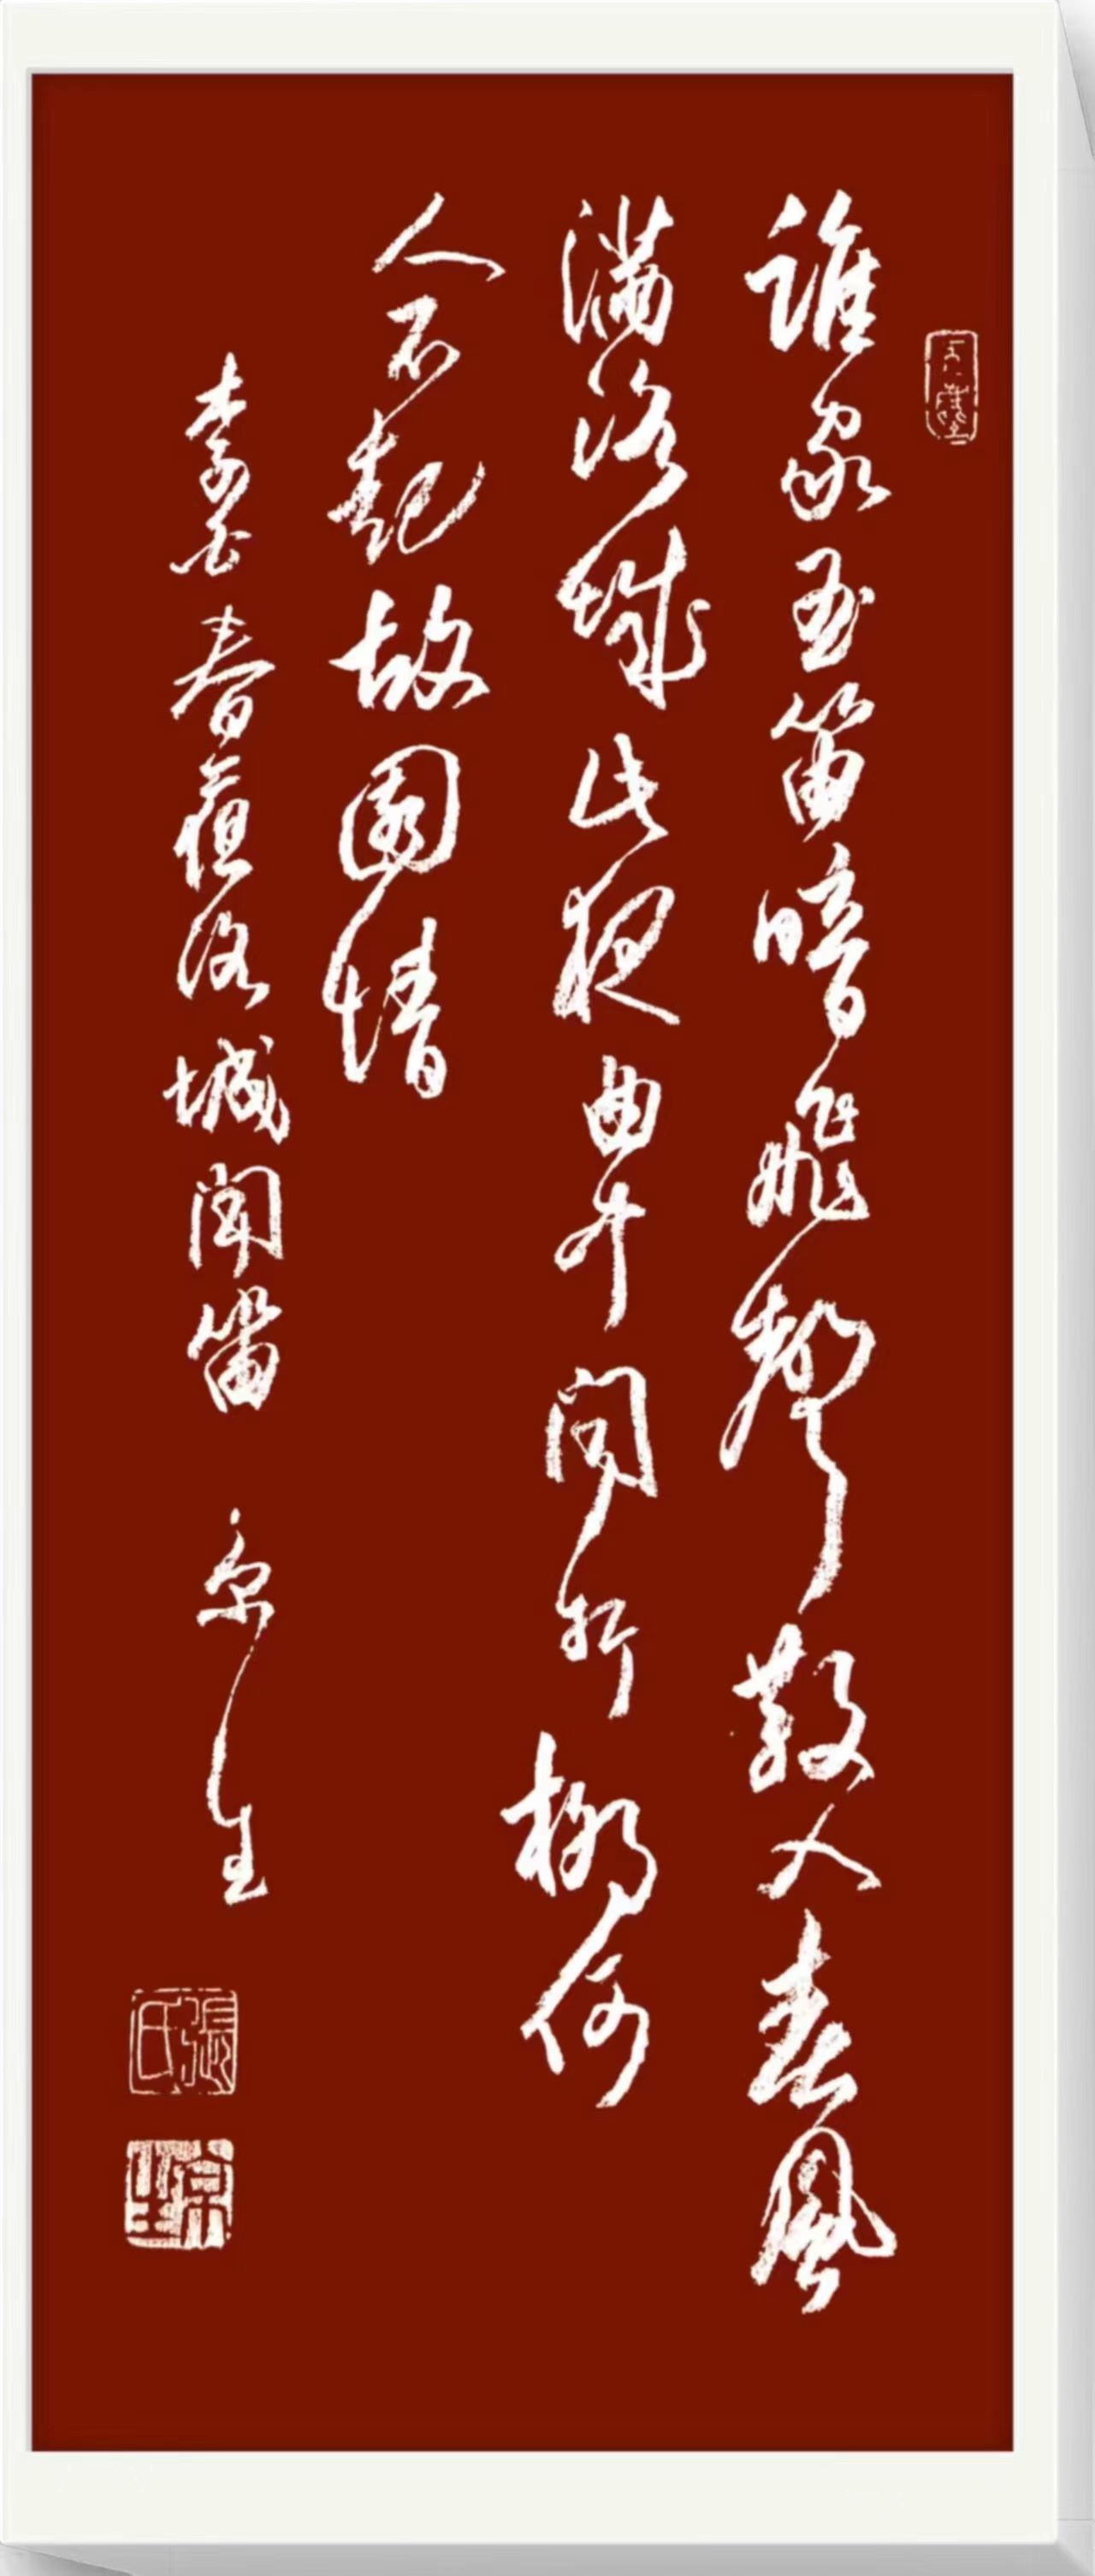 誰家玉笛暗飛聲散入春風
滿洛城此夜曲中聞折柳何
人不起故園情
李白春洛城聞笛 京生
張氏
京生